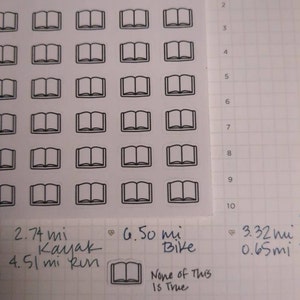 2
3
4
5
6
7
8
9
10
2.74 mi
Kayak
4.51 mi Run
6.50 mi
Bike
3.32 mi
0.65 mi
None of This
Is True